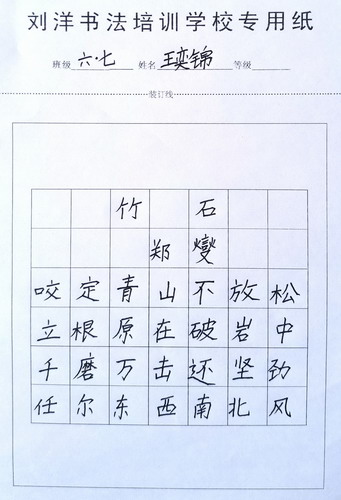 刘洋书法培训学校专用纸
班级 六·七 姓名 王奕锦 等级
装订线
竹 石
郑 燮
咬 定 青 山 不 放 松
立 根 原 在 破 岩 中
千 磨 万 击 还 坚 劲
任 尔 东 西 南 北 风